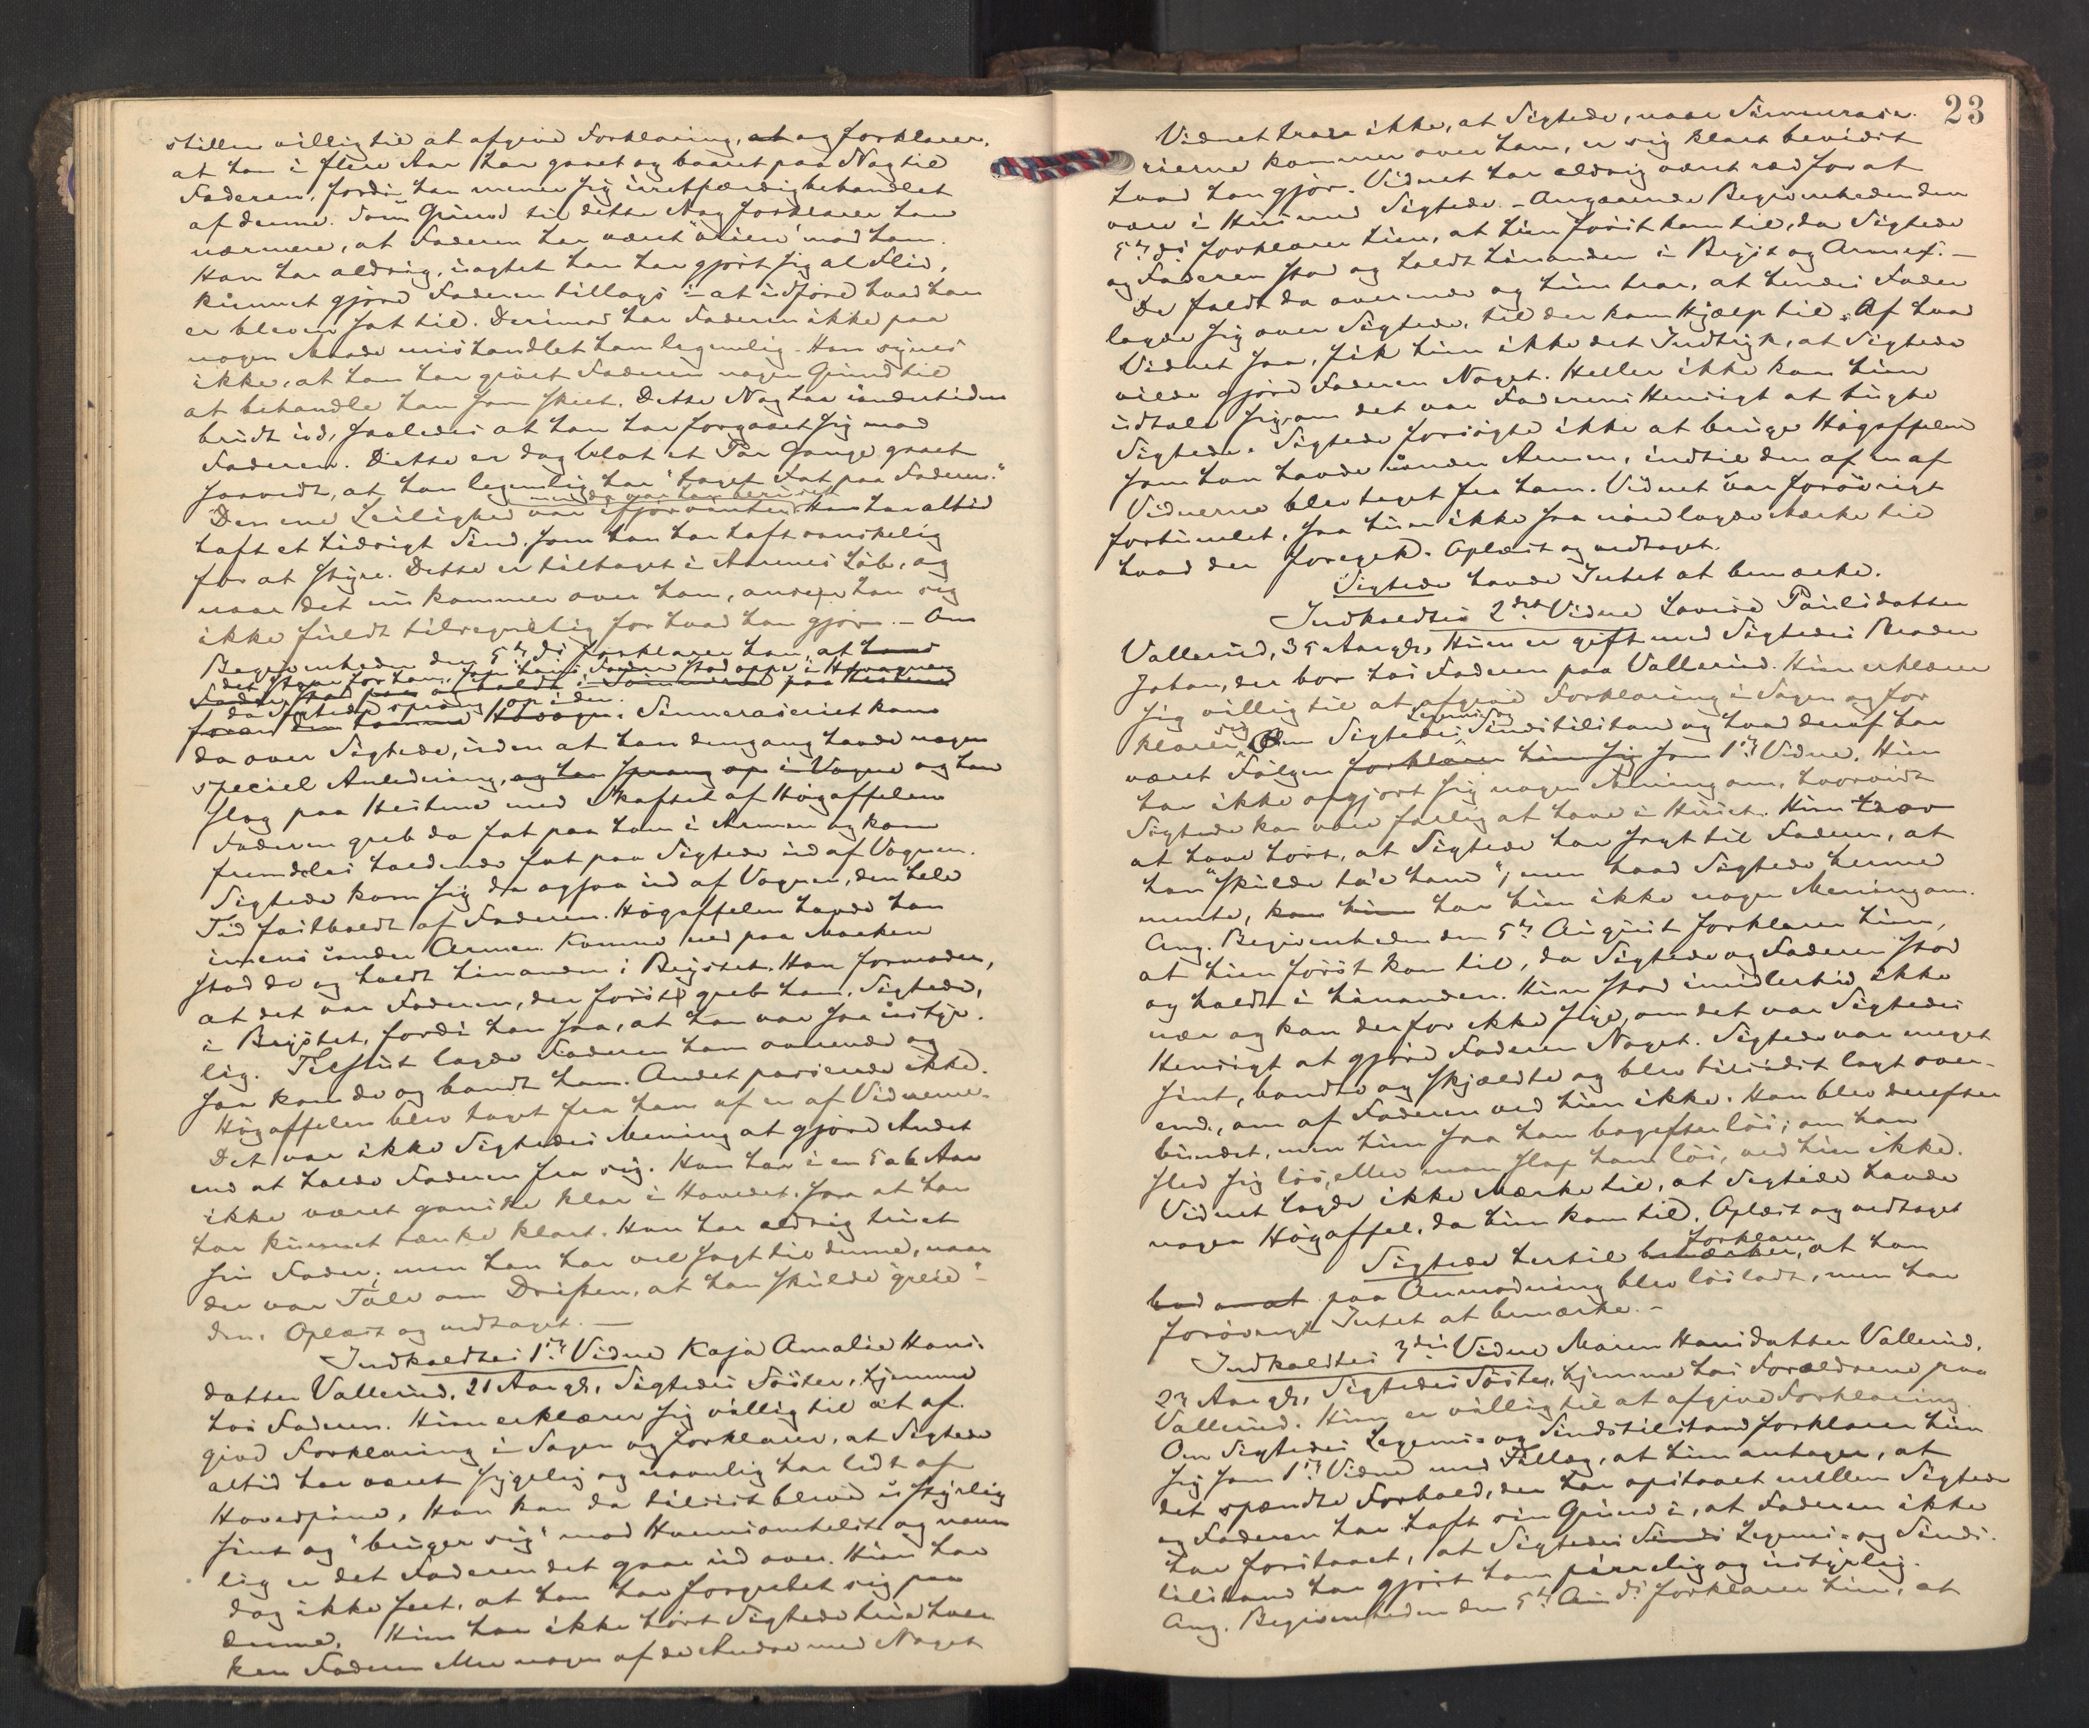 stiller villig til at afgive Forklaring, at og forklarer,
at han i flere Aar har gaaet og baaret paa Nag til
Faderen, fordi han mener sig uretfærdig behandlet
af denne. Som Grund til dette Nag forklarer han
nærmere, at Faderen har været "vrien" mod ham.
Han har aldrig, uagtet han har gjort sig al Flid,
kunnet gjøre Faderen tillags i at udføre hvad han
er bleven sat til. Derimod har Faderen ikke paa
nogen Maade mishandlet ham legemlig. Han synes
ikke, at han har givet Faderen nogen Grund til
at behandle ham som skeet. Dette Nag har undertiden
brudt ud, saaledes at han har forgaaet sig mod
Faderen. Dette er dog blot et Par Gange gaaet
saavidt, at han legemlig har "taget Fat paa Faderen."
men da var han beruset
Den ene Leilighed var ifjor vinter. Han har altid
haft et hidsigt Sind, som han har haft vanskelig
for at styre. Dette er tiltaget i Aarenes Løb, og
naar det nu kommer over ham, anser han sig
ikke fuldt tilregnelig for hvad han gjør. – Om
Begivenheden den 5te ds. forklarer han, at hans
det staar for ham, som hans Fader stod oppe i Høvognen
Fader stod paa og holdt i Tømmerne paa Hestene
da Sigtede sprang op i den.
foran den tomme Høvogn. Sinneraseriet kom
da over Sigtede, uden at han dengang havde nogen
speciel Anledning, og han sprang op i Vogne og han
slog paa Hestene med Skaftet af Høgaffelen
Faderen greb da fat paa ham i Armen og kom
fremdeles holdende fat paa Sigtede ud af Vognen.
Sigtede kom sig da ogsaa ud af Vognen, den hele
Tid fastholdt af Faderen. Høgaffelen havde han
imens under Armen. Komne ned paa Marken
stod de og holdt hinanden i Brystet. Han formoder,
at det var Faderen, der først greb ham, Sigtede,
i Brystet, fordi han saa, at han var saa ustyr-
lig. Tilslut lagde Faderen ham overende og
saa kom de og bandt ham. Andet passerede ikke.
Høgaffelen blev taget fra ham af en af Vidnerne.
Det var ikke Sigtedes Mening at gjøre Andet
end at holde Faderen fra sig. Han har i en 5 a 6 Aar
ikke været ganske klar i Hovedet, saa at han
har kunnet tænke klart. Han har aldrig truet
sin Fader; men han har vel sagt til denne, naar
der var Tale om Driften, at han skulde "greie"
den. Oplæst og vedtaget. —
Indkaldtes 1ste Vidne Kaja Amalie Hans-
datter Vallerud, 21 Aar gl., Sigtedes Søster, hjemme
hos Faderen. Hun erklærer sig villig til at af-
give Forklaring i Sagen og forklarer, at Sigtede
altid har været sygelig og navnlig har lidt af
Hovedpine. Han kan da tilsidst blive ustyrlig
sint og "bruger sig" mod Hvemsomhelst og navn-
lig er det Faderen det gaar ud over. Hun har
dog ikke seet, at han har forgrebet sig paa
denne. Hun har ikke hørt Sigtede true hver-
ken Faderen eller nogen af de Andre med Noget
23
Vidnet tror ikke, at Sigtede, naar Sinneurase-
rierne kommer over ham, er sig klart bevidst
hvad han gjør. Vidnet har aldrig været ræd for at
være i Hus med Sigtede. – Angaaende Begivenheden den
5te ds. forklarer hun, at hun først kom til, da Sigtede
og Faderen stod og holdt hinanden i Bryst og Armer. –
De faldt da overende og hun tror, at hendes Fader
lagde sig over Sigtede, til der kom Hjælp til. Af hvad
Vidnet saa, fik hun ikke det Indtryk, at Sigtede
vilde gjøre Faderen Noget. Heller ikke kan hun
udtale sig, om det var Faderens Hensigt at tugte
Sigtede. Sigtede forsøgte ikke at bruge Høgaffelen
som han havde under Armen, indtil den af en af
Vidnerne blev taget fra ham. Vidnet var forøvrigt
fortumlet, saa hun ikke saa nøie lagde Mærke til
hvad der foregik. Oplæst og vedtaget.
Sigtede havde Intet at bemærke.
Indkaldtes 2det Vidne Lovise Paulsdatter
Vallerud, 35 Aar gl. Hun er gift med Sigtedes Broder
Johan, der bor hos Faderen paa Vallerud. Hun erklærer
sig villig til at afgive Forklaring i Sagen og for-
sig Legems- og
klarer Om Sigtedes Sindstilstand og hvad deraf har
været Følgen forklarer hun sig som 1ste Vidne. Hun
har ikke opgjort sig nogen Mening om, hvorvidt
Sigtede kan være farlig at have i Huset. Hun tror
at have hørt, at Sigtede har sagt til Faderen, at
han "skulde ta'e ham", men hvad Sigtede hermed
mente, kan hun har hun ikke nogen Mening om.
Ang. Begivenheden den 5te August forklarer hun,
at hun først kom til, da Sigtede og Faderen stod
og holdt i hinanden. Hun stod imidlertid ikke
nær og kan derfor ikke sige, om det var Sigtedes
Hensigt at gjøre Faderen Noget. Sigtede var meget
sint, bandte og skjældte og blev tilsidst lagt over-
ende, om af Faderen ved hun ikke. Han blev derefter
bundet, men hun saa ham bagefter løs; om han
sled sig løs, eller man slap ham løs, ved hun ikke.
Vidnet lagde ikke Mærke til, at Sigtede havde
nogen Høgaffel, da hun kom til. Oplæst og vedtaget
forklarer
Sigtede hertil bemærker, at han
bad om at paa Anmodning blev løsladt, men har
forøvrigt Intet at bemærke. –
Indkaldtes 3die Vidne Maren Hansdatter Vallerud,
23 Aar gl., Sigtedes Søster, hjemme hos Forældrene paa
Vallerud. Hun er villig til at afgive Forklaring.
Om Sigtedes Legems- og Sindstilstand forklarer hun
sig som 1ste Vidne med Tillæg, at hun antager, at
det spændte Forhold, der har opstaaet mellem Sigtede
og Faderen har haft sin Grund i, at Faderen ikke
har forstaaet, at Sigtedes Sinds Legems- og Sinds-
tilstand har gjort ham pirrelig og ustyrlig.
Ang. Begivenheden den 5te Aug ds. forklarer hun, at